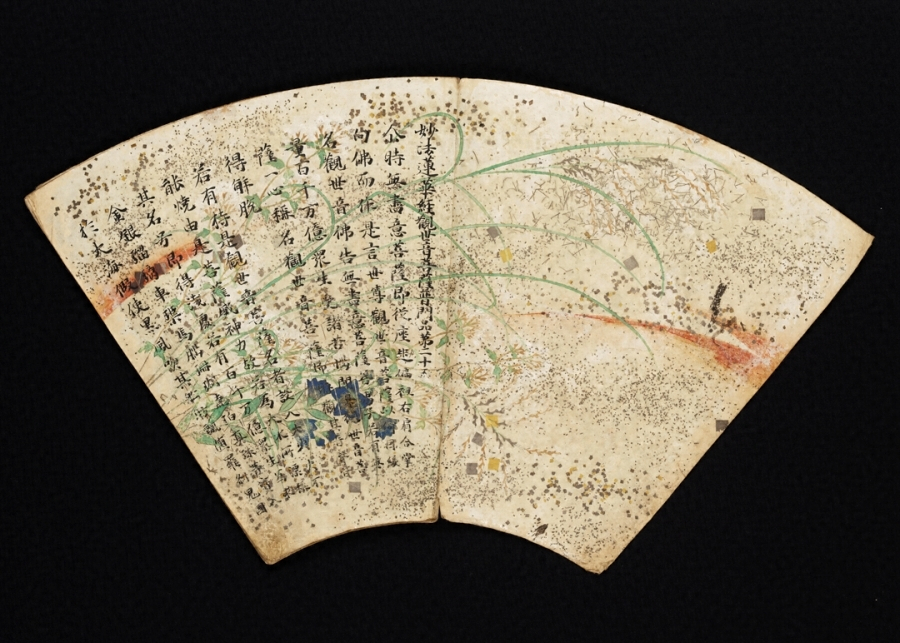 妙法蓮華經觀世音菩薩普門品第二十五
尒時無盡意菩薩即從座起偏袒右肩合掌
向佛而作是言世尊觀世音菩薩以何因緣
名觀世音佛告無盡意菩薩善男子若有無
量百千万億衆生受諸苦惱聞是觀世音菩
薩一心稱名觀世音菩薩即時觀其音聲皆
得解脫
若有持是觀世音菩薩名者設入大火火不
能燒由是菩薩威神力故若為大水所漂稱
其名号即得淺處若有百千万億衆生為求
金銀瑠璃車𤦲馬瑙珊瑚虎珀真珠等寶入
於大海假使黑風吹其舩舫漂墮羅刹鬼國